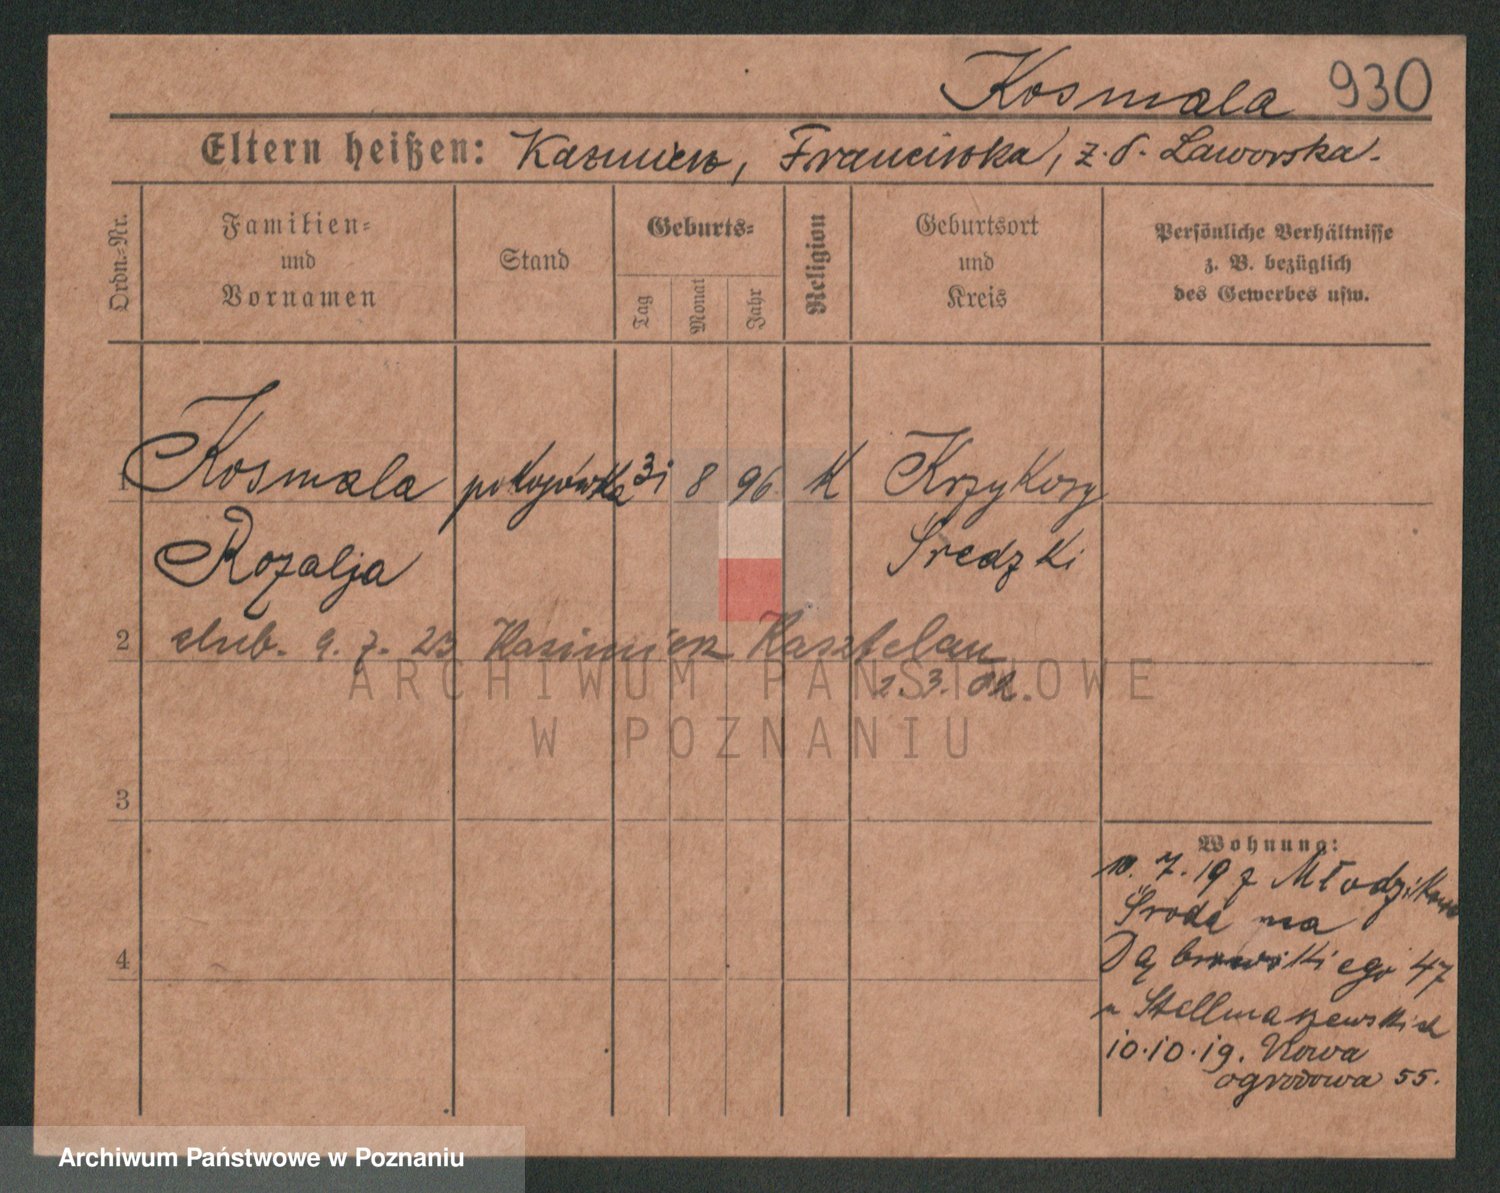 Kosmala 930
Eltern heißen: Kazimierz, Franciszka, z. d. Laworska.
Ordn.-Nr.
Familien-
und
Vornamen
Stand
Geburts-
Tag
Monat
Jahr
Religion
Geburtsort
und
Kreis
Persönliche Verhältnisse
z. B. bezüglich
des Gewerbes usw.
1 Kosmala pokojówka 31 8 96 K Krzykosy
Rozalja Średzki
2 slub. 9. 7. 23 Kazimierz Kasztelan
2. 3.
ARCHIWUM PAŃSTWOWE
W POZNANIU
3
4
Wohnung:
10. 7. 19 z Młodzikowo
Środa na
Dąbrowskiego 47
u Stellmaszewskich
10.10.19. Nowa
ogrodowa 55.
Archiwum Państwowe w Poznaniu